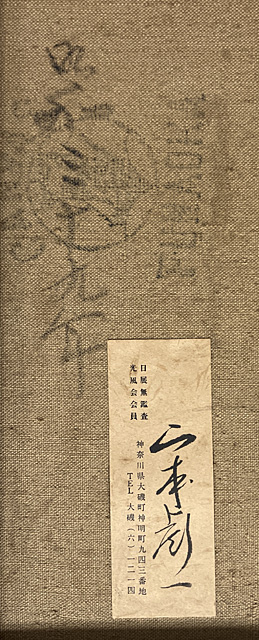 昭和三十九年
日展無鑑査
光風会会員
山本彪一
神奈川県大磯町神明町九四三番地
TEL 大磯(六)一二一四